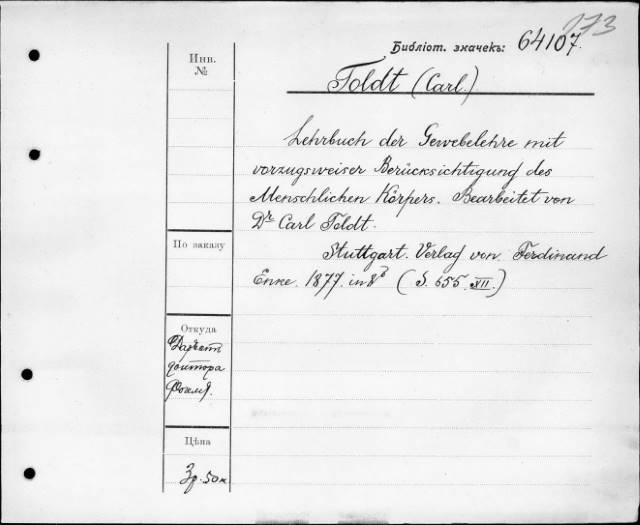 173
Библіот. значекъ: 64107.
Инв.
№
Toldt (Carl.)
Lehrbuch der Gewebelehre mit
vorzugsweiser Berücksichtigung des
Menschlichen Körpers. Bearbeitet von
Dr Carl Toldt.
По заказу
Stuttgart. Verlag von Ferdinand
Enke. 1877. in 8º (S. 655. XII.)
Откуда
доктора
Цѣна
3р. 50к